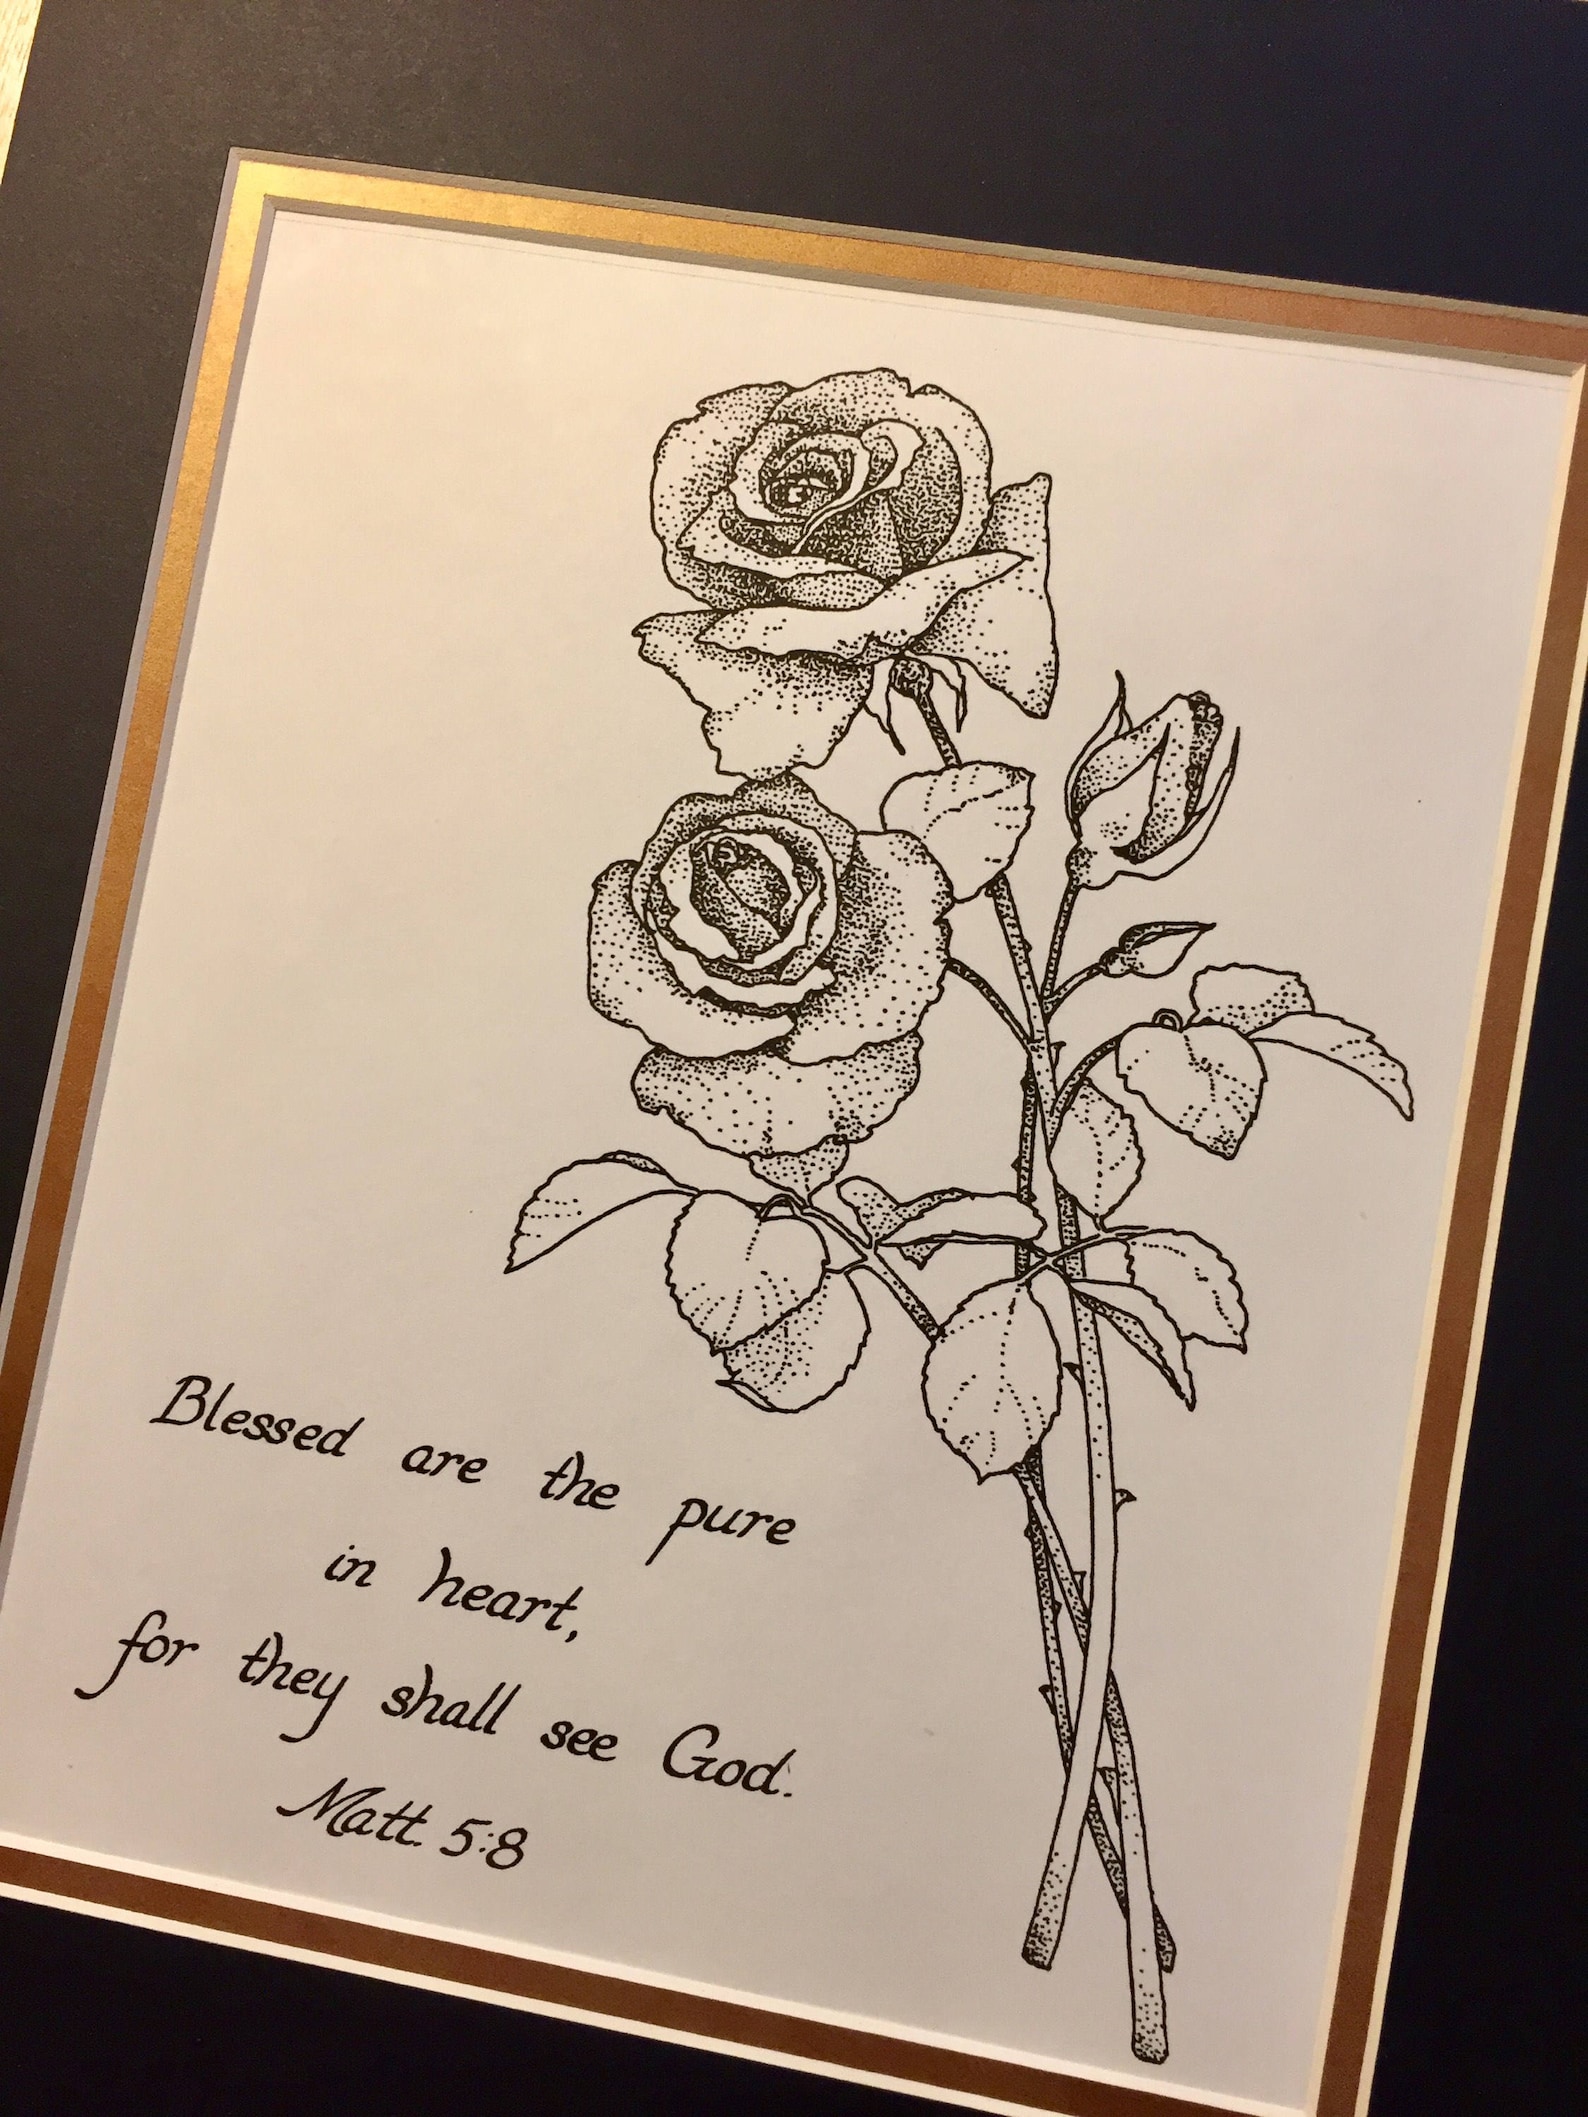 Blessed are the pure
in heart,
for they shall see God.
Matt. 5:8